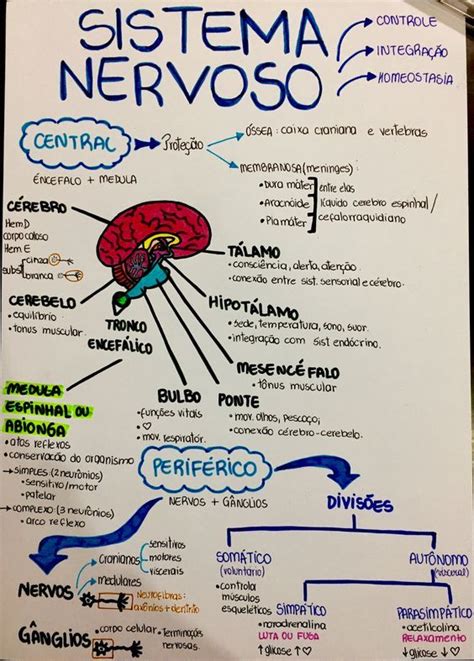 SISTEMA
NERVOSO
CONTROLE
INTEGRAÇÃO
HOMEOSTASIA
CENTRAL
Proteção
ÓSSEA: caixa craniana e vertebras
ENCÉFALO + MEDULA
MEMBRANOSA (meninges):
• Dura máter
• Aracnóide
• Pia máter
entre elas
líquido cérebro espinhal/
cefalorraquidiano
CÉREBRO
Hem D
corpo caloso
Hem E
subst
cinza
branca
TÁLAMO
• consciência, alerta, atenção.
• conexão entre sist. sensorial e cérebro.
CEREBELO
• equilíbrio
• tonus muscular.
TRONCO
ENCEFÁLICO
HIPOTÁLAMO
• sede, temperatura, sono, suor.
• integração com sist endócrino.
MESENCÉFALO
• tônus muscular
MEDULA
ESPINHAL OU
ABIONGA
• atos reflexos
• conservação do organismo
→ SIMPLES (2 neurônios)
• sensitivo/motor
• patelar
→ COMPLEXO (3 neurônios)
• arco reflexo
BULBO
• funções vitais
• ♡
• mov. respiratór.
PONTE
• mov. olhos, pescoço;
• conexão cérebro-cerebelo.
PERIFÉRICO
NERVOS + GÂNGLIOS
DIVISÕES
NERVOS
Cranianos
sensitivos
motores
viscerais
medulares
Neurofibras:
axônios + dentrito
GÂNGLIOS
• corpo celular
• terminaçõs
nervosas.
SOMÁTICO
(voluntário)
• controla
músculos
esqueléticos
AUTÔNOMO
(visceral)
SIMPÁTICO
• noradrenalina
LUTA OU FUGA
↑ glicose ↑♡
PARASIMPÁTICO
• acetilcolina
RELAXAMENTO
↓ glicose ↓♡